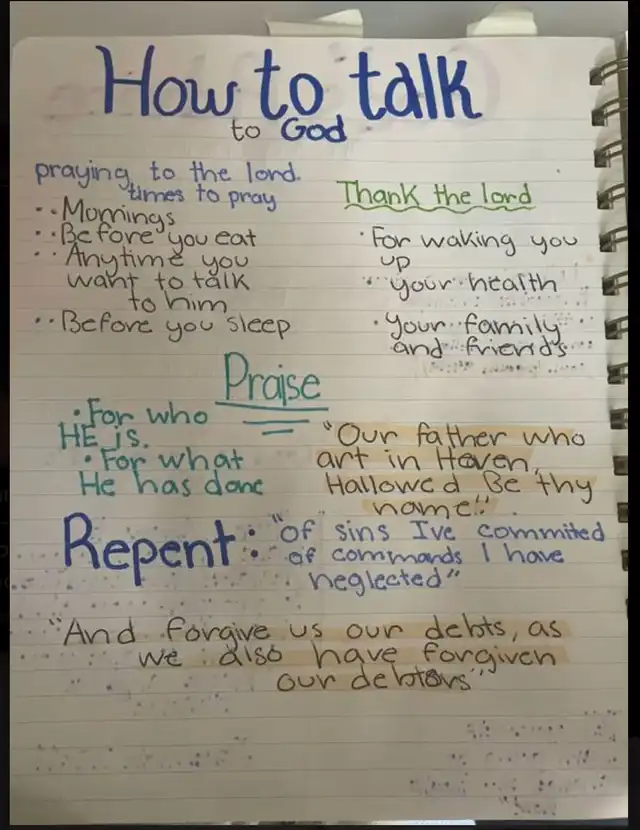 How to talk
to God
praying to the lord.
times to pray
·· Mornings
·· Before you eat
·· Anytime you
want to talk
to him
·· Before you sleep
Thank the lord
· For waking you
up
· your health
· Your family
and friends
Praise
· For who
HE is.
· For what
He has done
"Our father who
art in Heven,
Hallowed Be thy
name".
Repent: "of sins Ive committed
of commands I have
neglected"
"And forgive us our debts, as
we also have forgiven
our debtors"